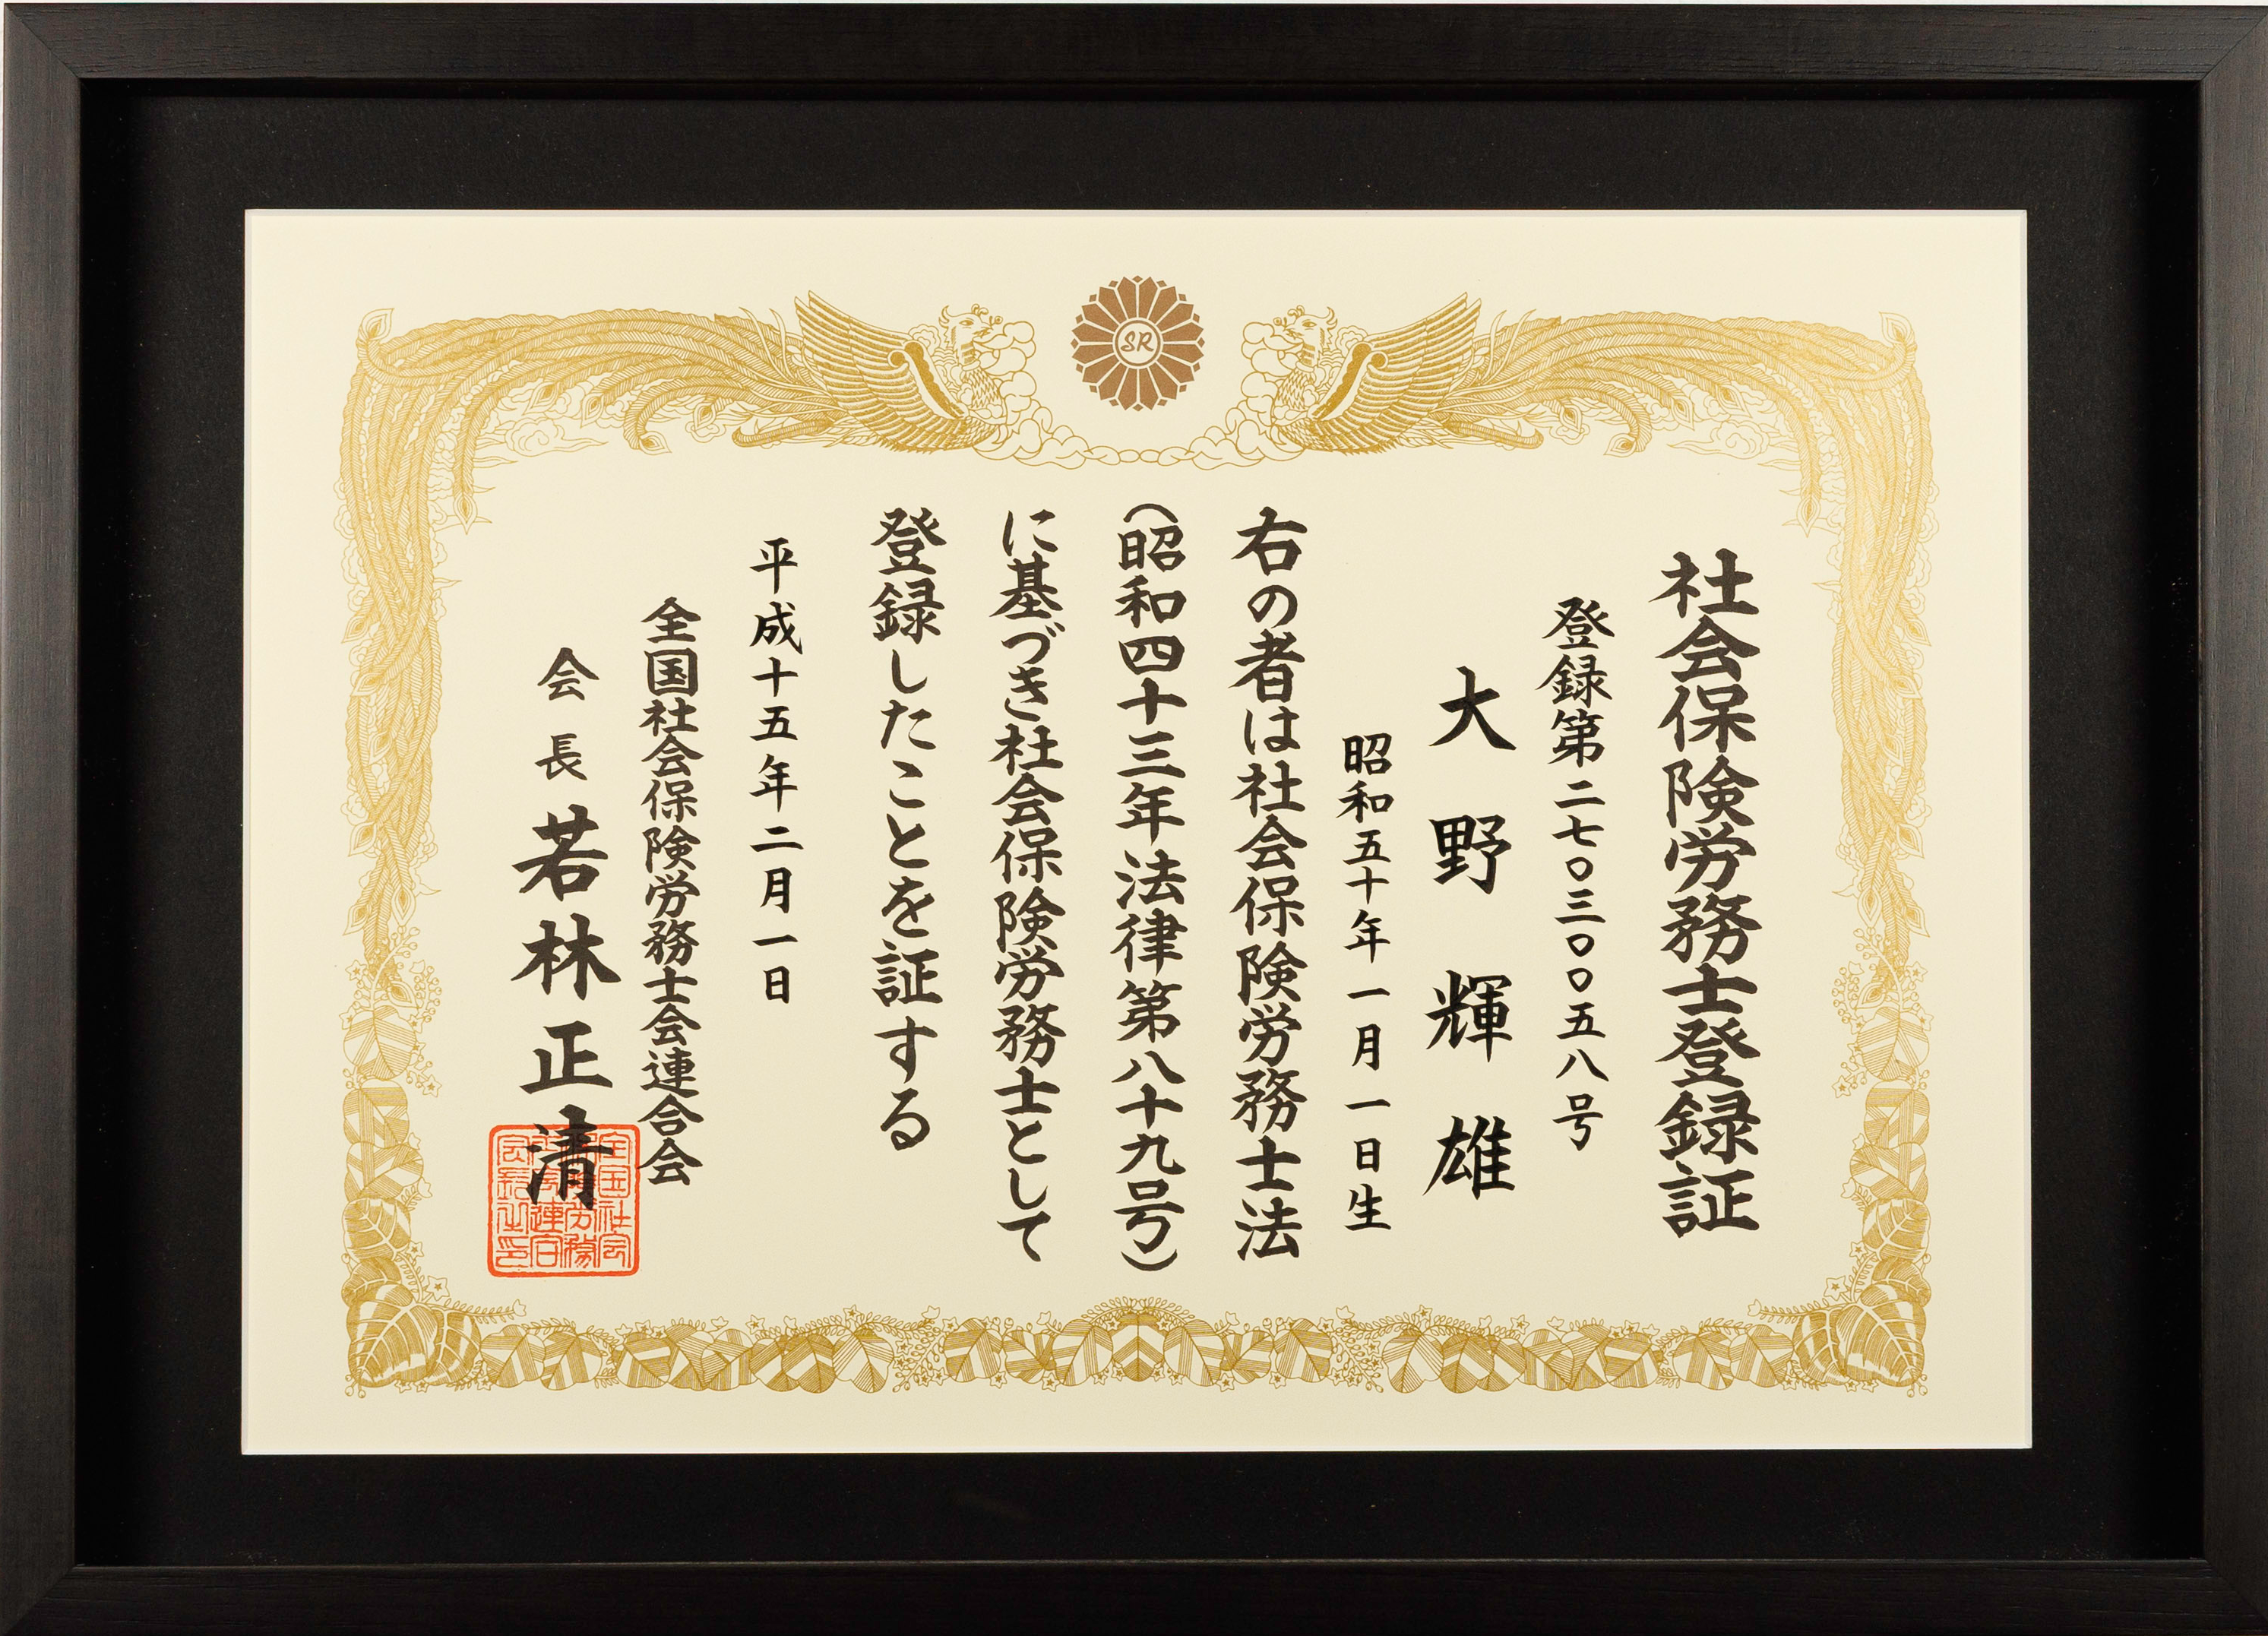 社会保険労務士登録証
登録第二七〇三〇〇五八号
大野輝雄
昭和五十年一月一日生
右の者は社会保険労務士法
(昭和四十三年法律第八十九号)
に基づき社会保険労務士として
登録したことを証する
平成十五年二月一日
全国社会保険労務士会連合会
会長 若林正清
SR